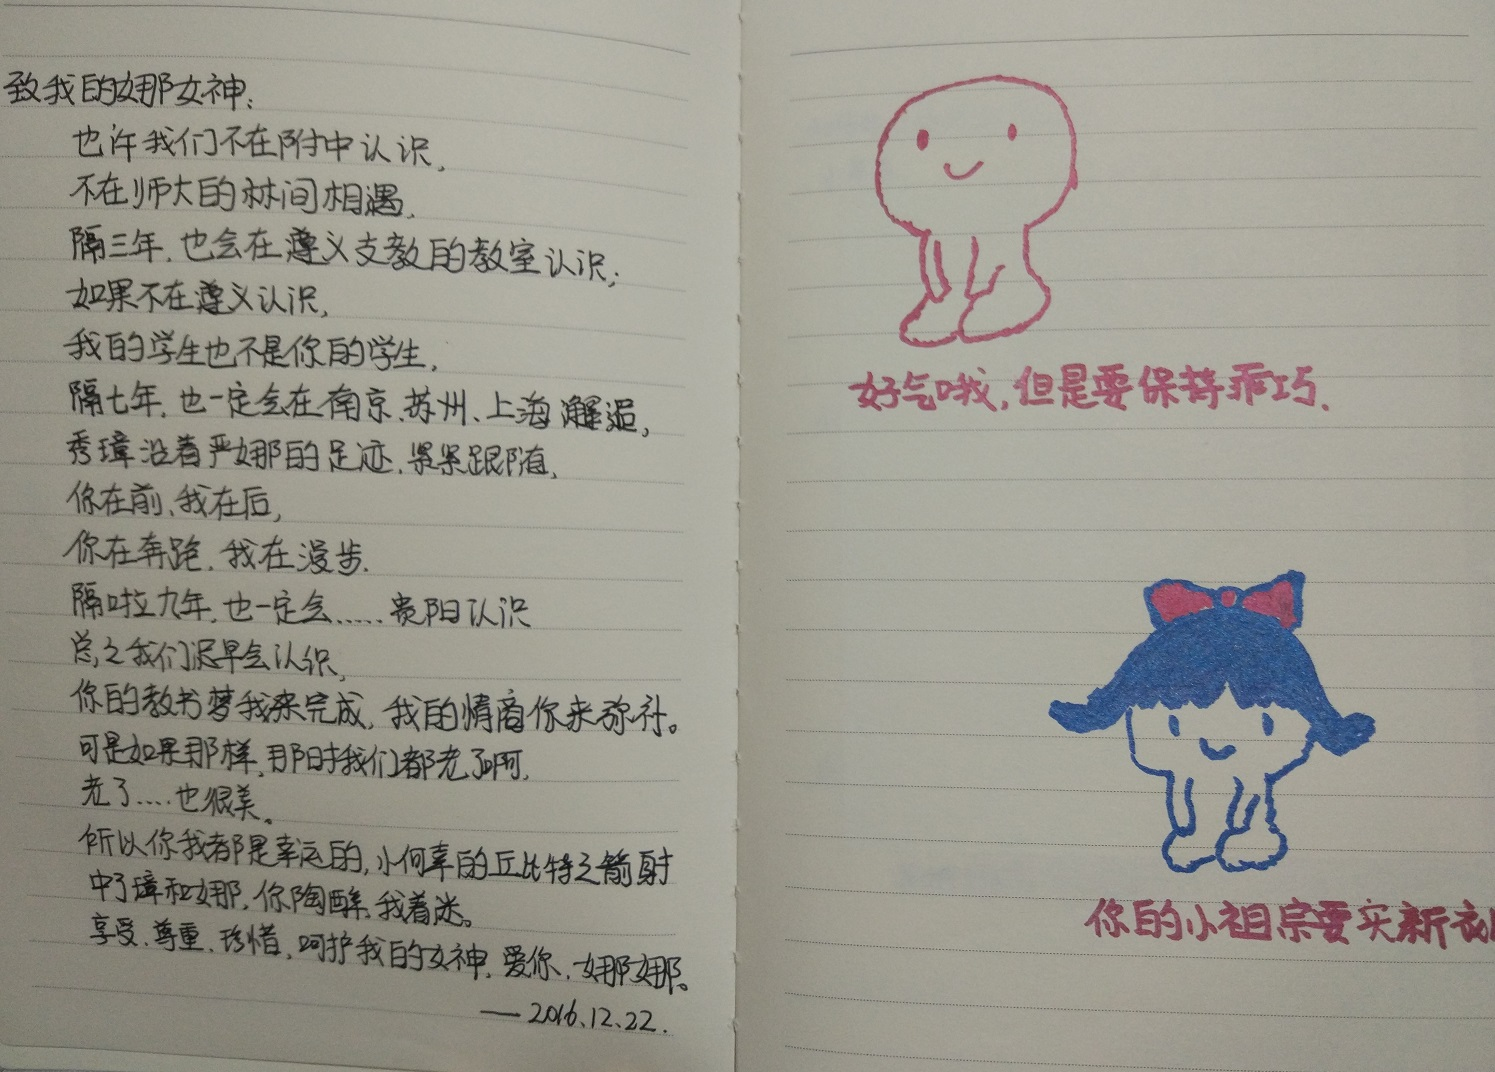 致我的娜女神：
也许我们不在附中认识，
不在师大的林间相遇，
隔三年，也会在遵义支教的教室认识；
如果不在遵义认识，
我的学生也不是你的学生，
隔七年，也一定会在南京、苏州、上海邂逅，
秀璋沿着严娜的足迹，紧紧跟随，
你在前，我在后，
你在奔跑，我在漫步．
隔啦九年，也一定会……贵阳认识
总之我们迟早会认识，
你的教书梦我来完成，我的情商你来弥补。
可是如果那样，那时我们都老了啊，
老了……也很美。
所以你我都是幸运的，小何幸的丘比特之箭射
中了璋和娜，你陶醉，我着迷。
享受、尊重、珍惜，呵护我的女神，爱你，娜娜。
——2016.12.22.
好气哦，但是要保持乖巧．
你的小祖宗要买新衣